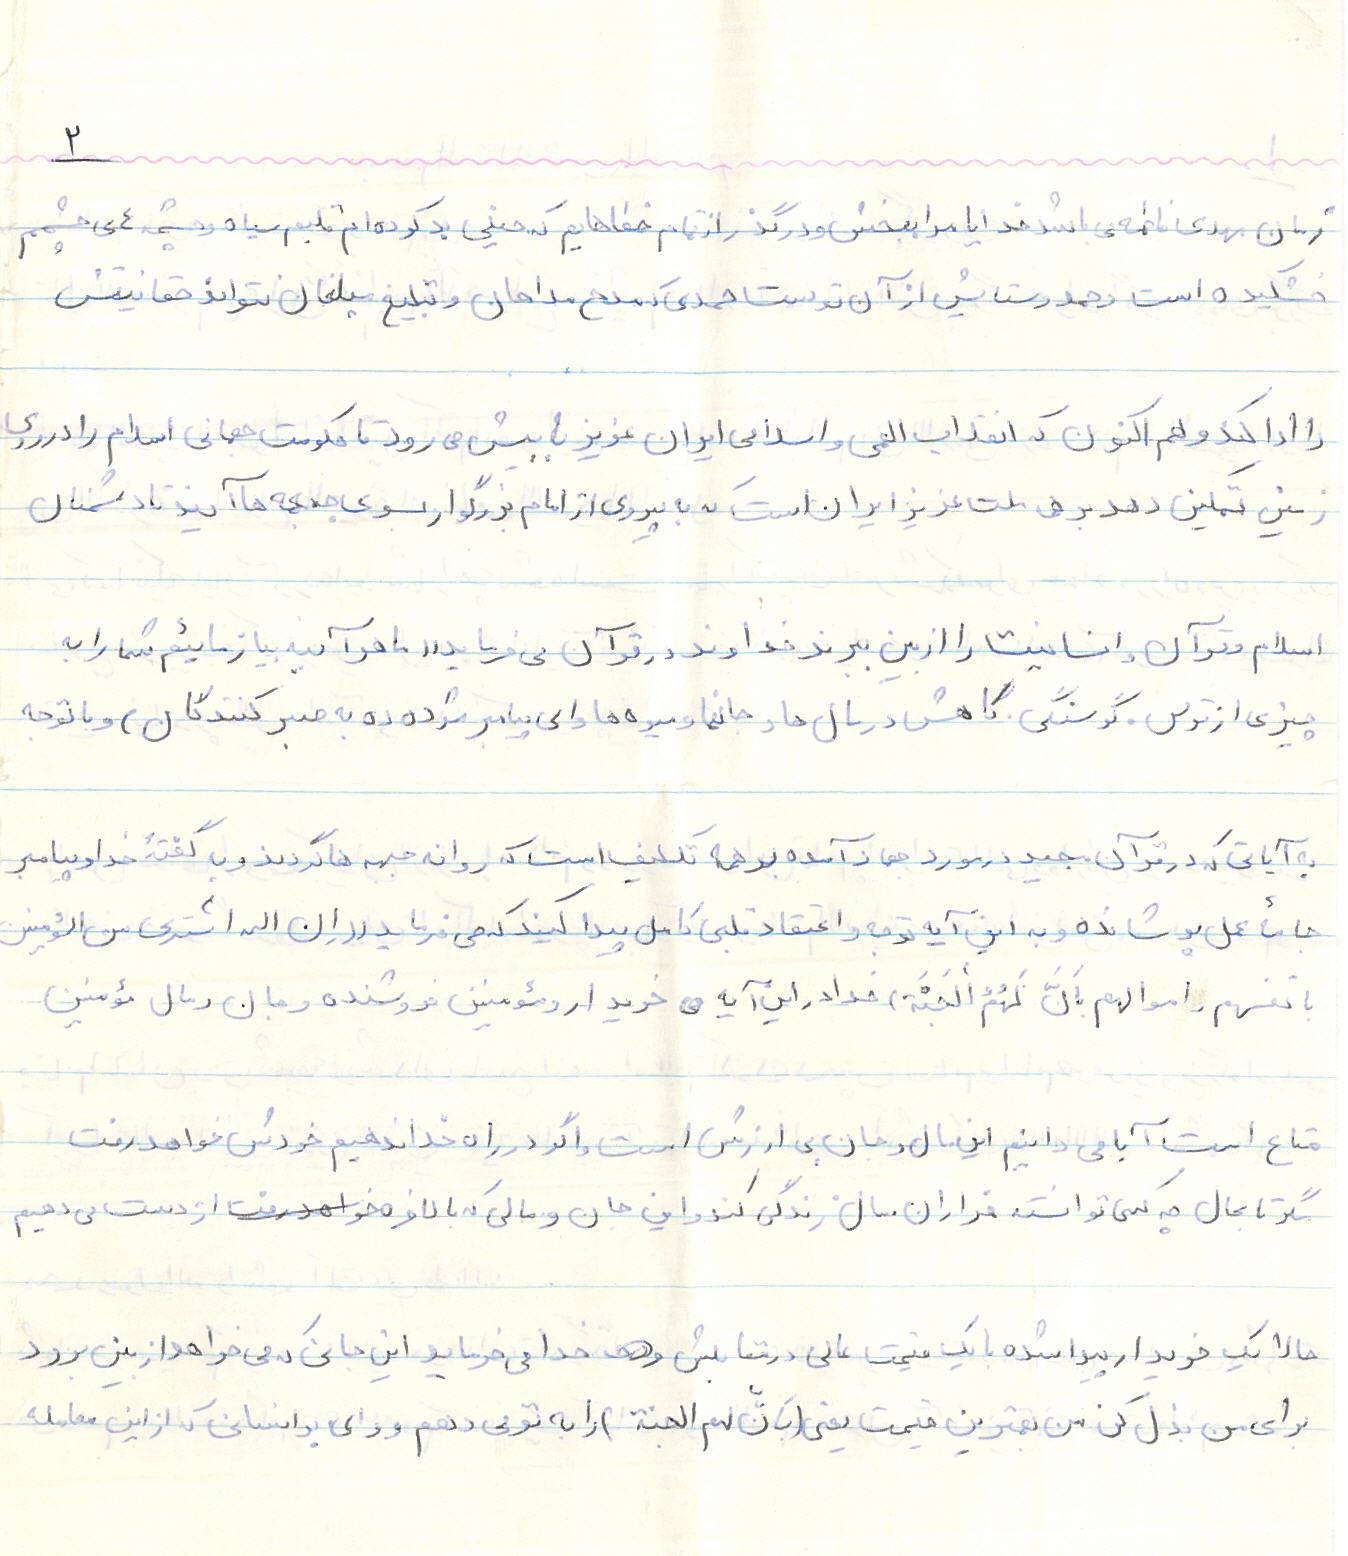 ۲
زمان مهدی فاطمه می باشد خدایا مرا ببخش و درگذر از تمام خطاهایم که خیلی بد کرده ام قلبم سیاه و چشمه ی چشمم
خشکیده است و حمد و ستایش از آن توست حمدی که مدح مداحان و تبلیغ مبلغان نتواند حقانیتش
را ادا کند و هم اکنون که انقلاب الهی و اسلامی ایران عزیز به پیش می رود تا حکومت جهانی اسلام را در روی
زمین تمکین دهد بر ملت عزیز ایران است که با پیروی از امام بزرگوار بسوی جبهه ها آیند تا دشمنان
اسلام و قرآن و انسانیت را از بین ببرند خداوند در قرآن می فرماید (( ما هر آئینه بیازمائیم شما را به
چیزی از ترس و گرسنگی . کاهش در مال ها و جانها و میوه ها و ای پیامبر مژده ده به صبر کنندگان )) و با توجه
به آیاتی که در قرآن مجید در مورد جهاد آمده بر همه تکلیف است که روانه جبهه ها گردند و به گفتۀ خدا و پیامبر
جامۀ عمل پوشانده و به این آیه توجه و اعتقاد قلبی کامل پیدا کنید که می فرماید (( ان الله اشتری من المؤمنین
بانفسهم و اموالهم بَأَنَّ لَهُمُ أَلْجَنَّة )) خدا در این آیه خریدار و مؤمنین فروشنده و جان و مال مؤمنین
متاع است آیا می دانیم این مال و جان بی ارزش است و اگر در راه خدا ندهیم خودش خواهد رفت
مگر تا بحال چه کسی توانسته هزاران سال زندگی کند و این جان و مالی که بالاخره خواهد رفت از دست می دهیم
حالا یک خریدار پیدا شده با یک قیمت عالی در مقابلش خدا می فرماید این جانی که می خواهد از بین برود
برای من بذل کن من بهترین قیمت یعنی (بَأنّ لهم الجنة ) را به تو می دهم و وای بر انسانی که از این معامله